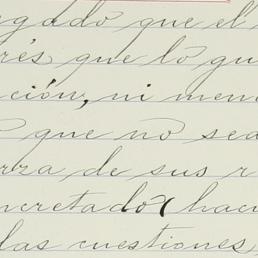 gado que el
rés que lo gu
ción, ni men
que no sea
rza de sus r
ncretado (hac
las cuestiones